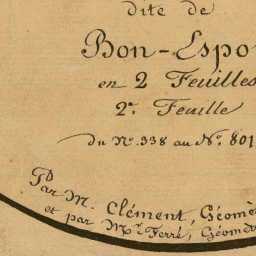 dite de
Bon-Espoi
en 2 Feuilles
2e. Feuille
du No. 338 au No. 801
Par M. Clément, Géomè
et par Mr. Ferré, Géomet